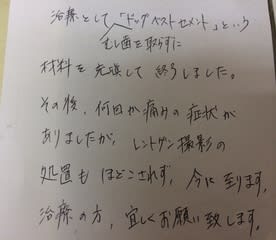 治療として「ドックベストセメント」という
むし歯を取らずに
材料を充填して終了しました。
その後、何回か痛みの症状が
ありましたが、レントゲン撮影の
処置もほどこされず、今に至ります。
治療の方、宜しくお願い致します。